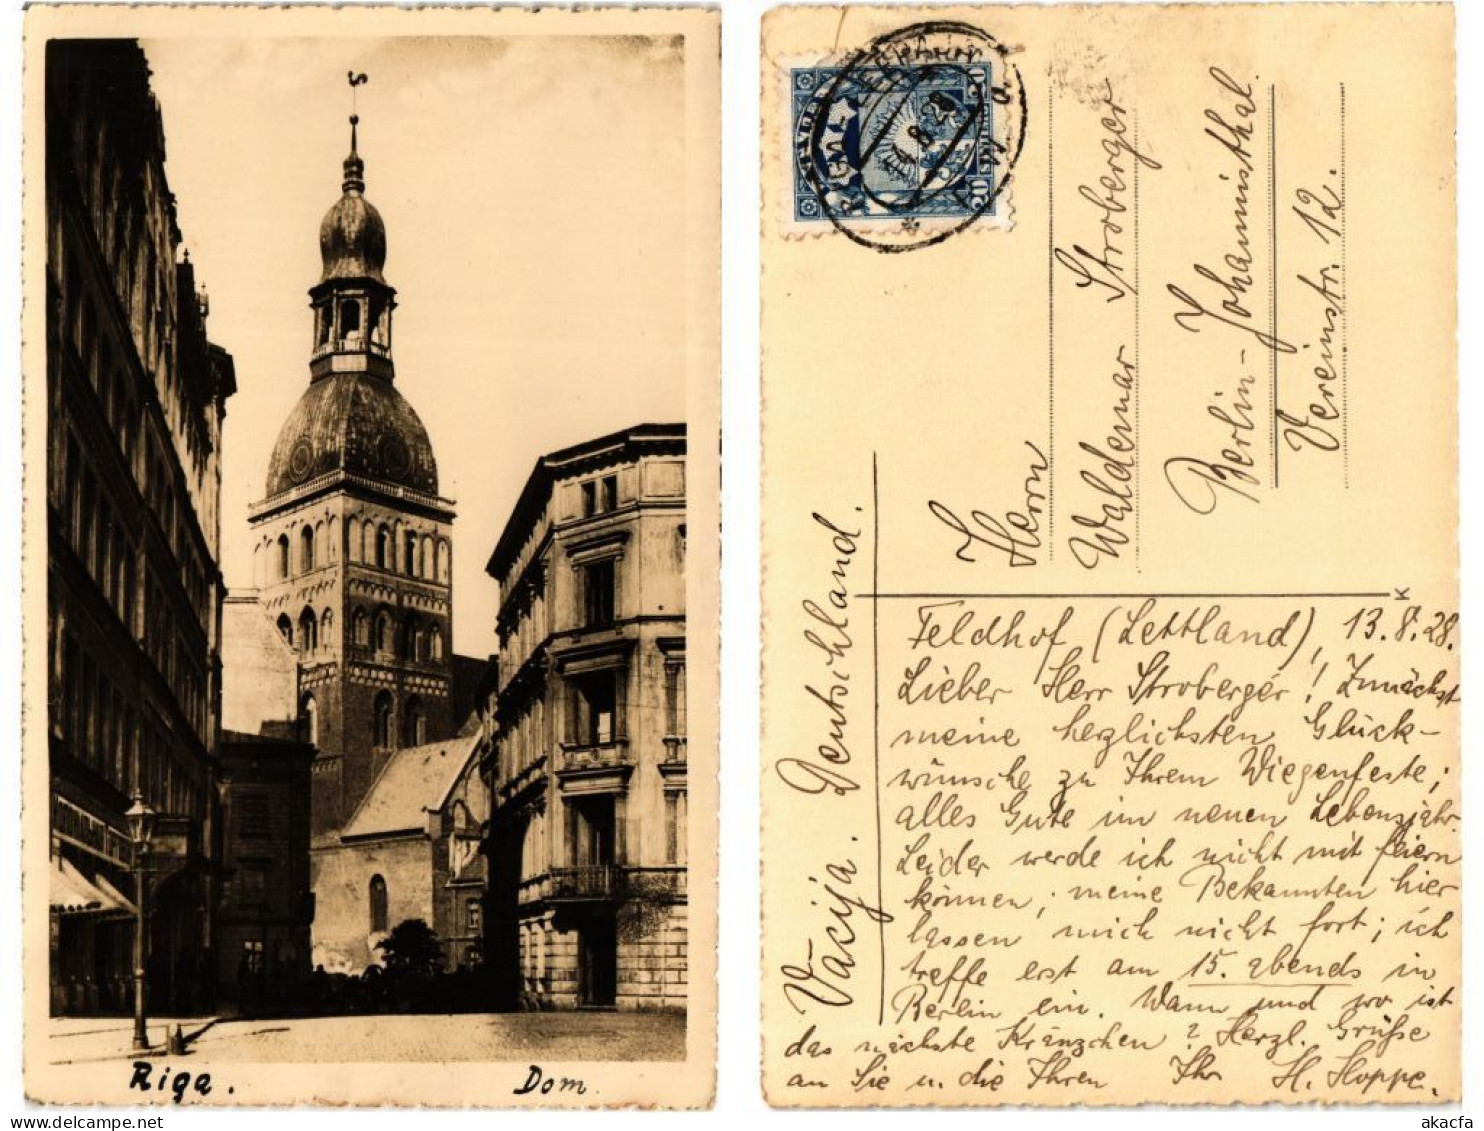 Riga.
Dom.
20
20
13.8.28
Herrn
Waldemar Stroberger
Berlin-Johannisthal.
Vereinstr. 12.
Vācija. Deutschland.
K
Feldhof (Lettland), 13.8.28.
Lieber Herr Stroberger! Zunächst
meine herzlichsten Glück-
wünsche zu Ihrem Wiegenfeste;
alles Gute im neuen Lebensjahr.
Leider werde ich nicht mit feiern
können; meine Bekannten hier
lassen mich nicht fort; ich
treffe erst am 15. abends in
Berlin ein. Wann und wo ist
das nächste Kränzchen? Herzl. Grüße
an Sie u. die Ihren Ihr H. Hoppe.
delcampe.net
akacfa